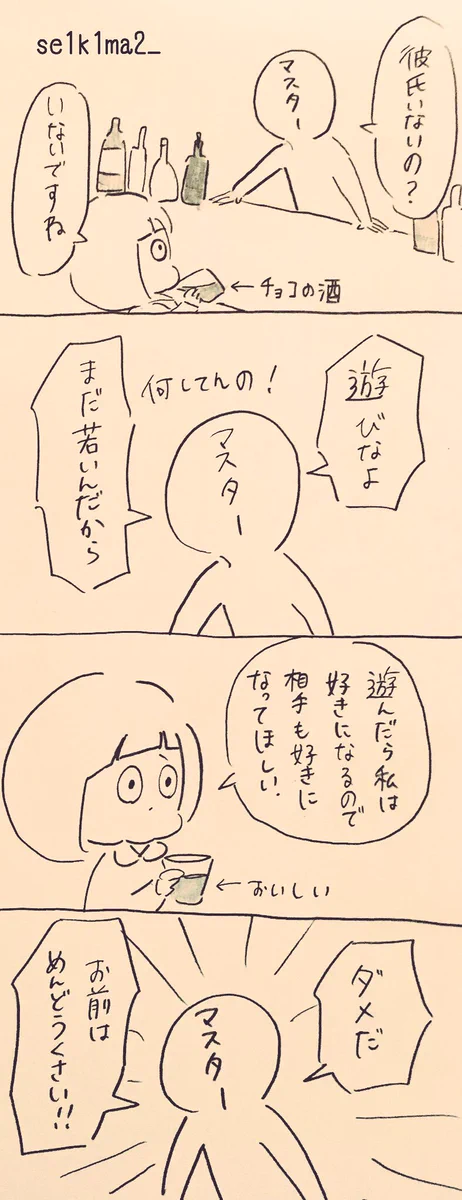 se1k1ma2_
彼氏いないの?
マスター
いないですね
←チョコの酒
遊びなよ
何してんの!
マスター
まだ若いんだから
遊んだら私は
好きになるので
相手も好きに
なってほしい.
←おいしい
ダメだ
マスター
お前は
めんどうくさい!!